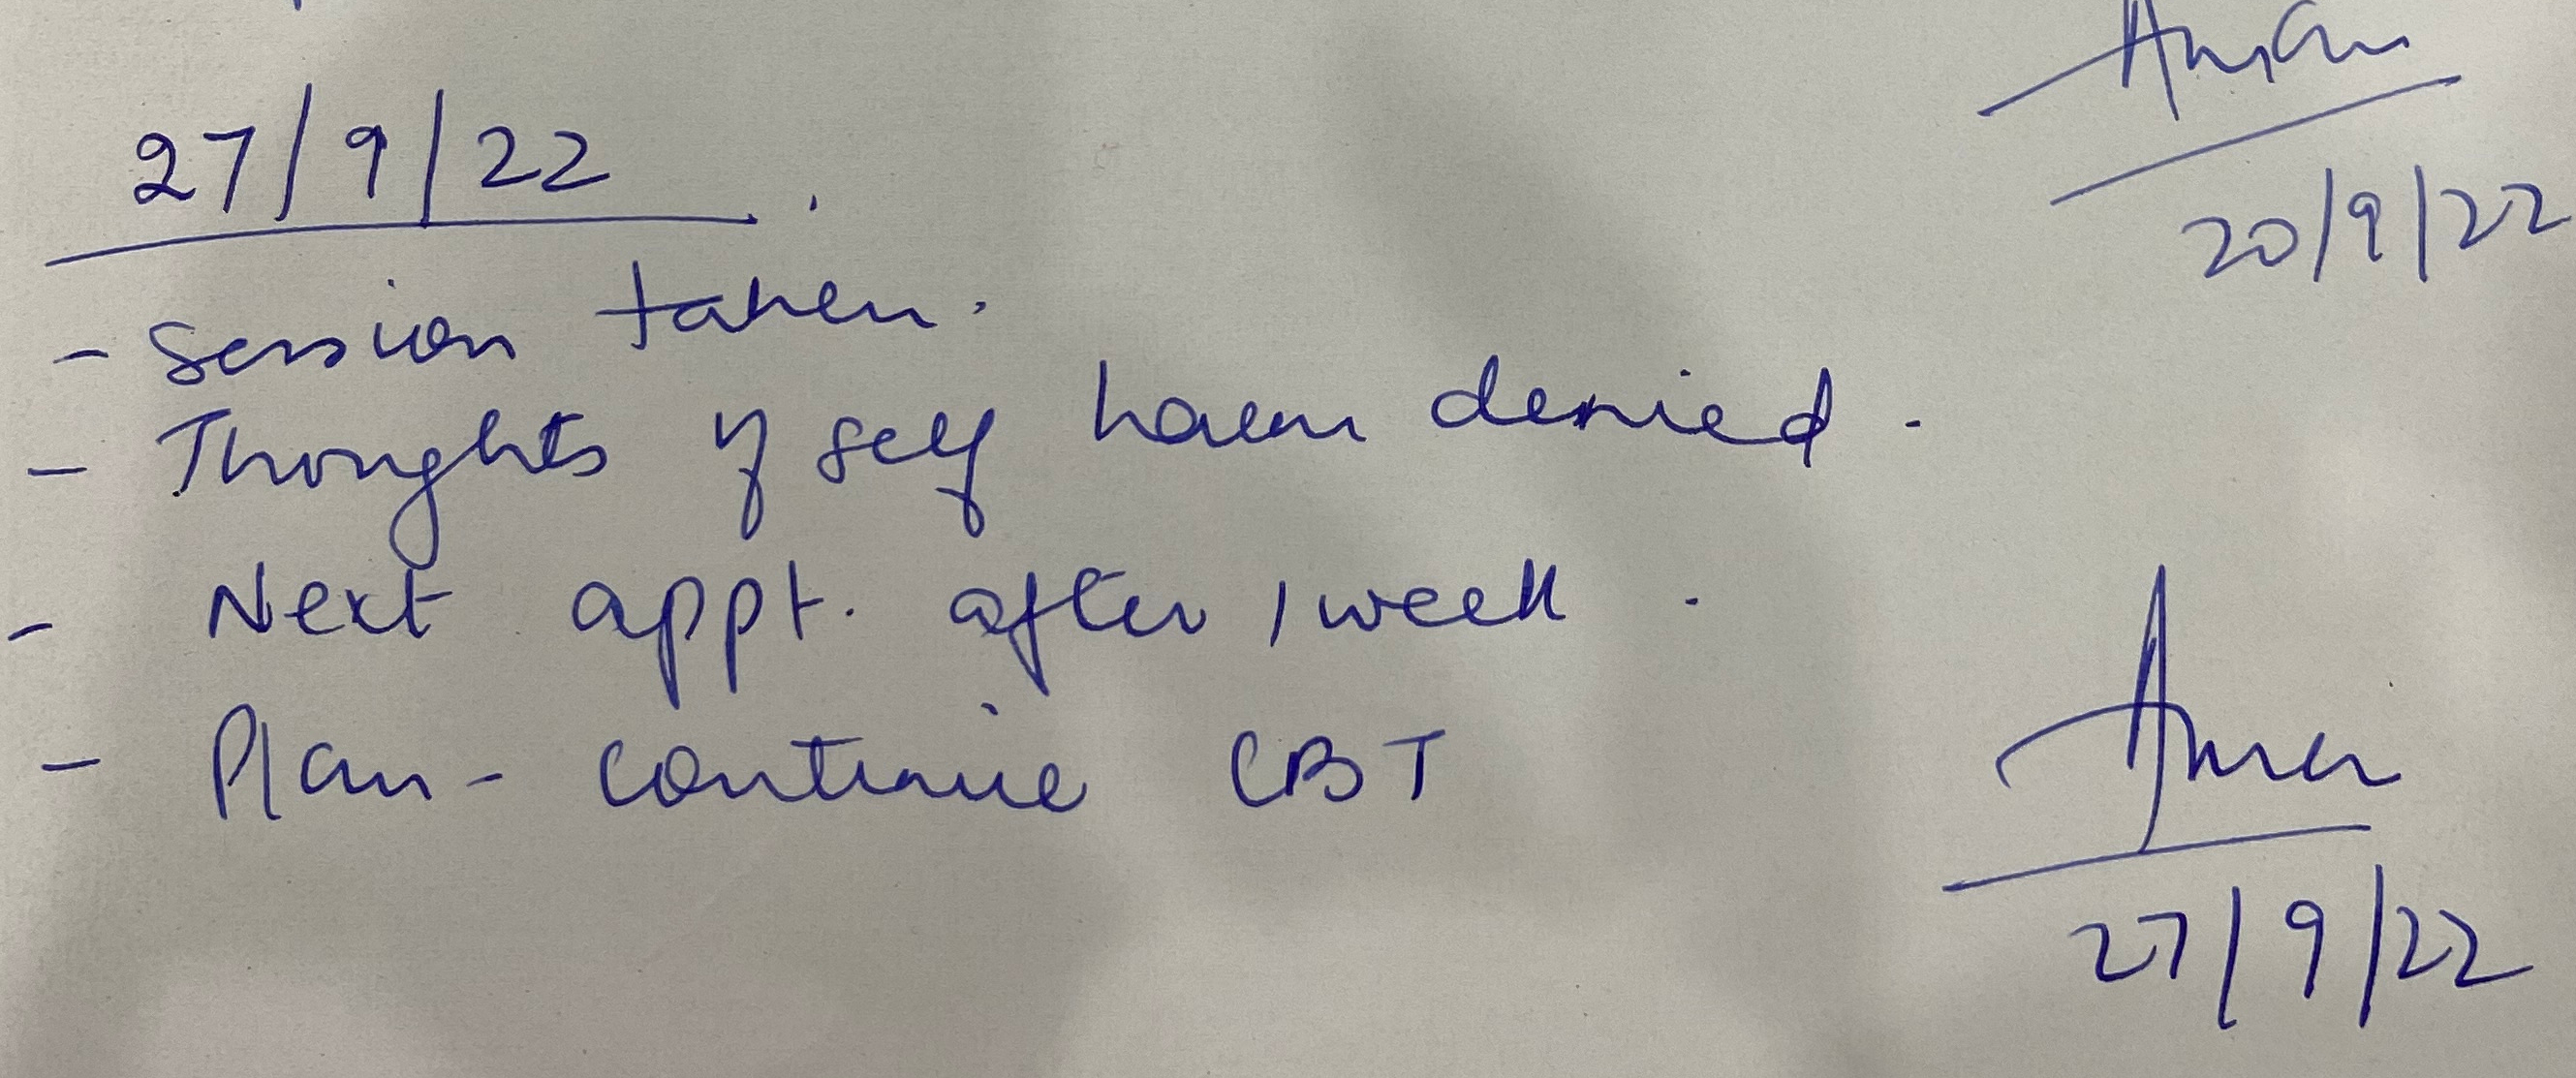 20/9/22
27/9/22
- Session taken.
- Thoughts of self harm denied.
- Next appt. after 1 week.
- Plan - continue CBT
27/9/22